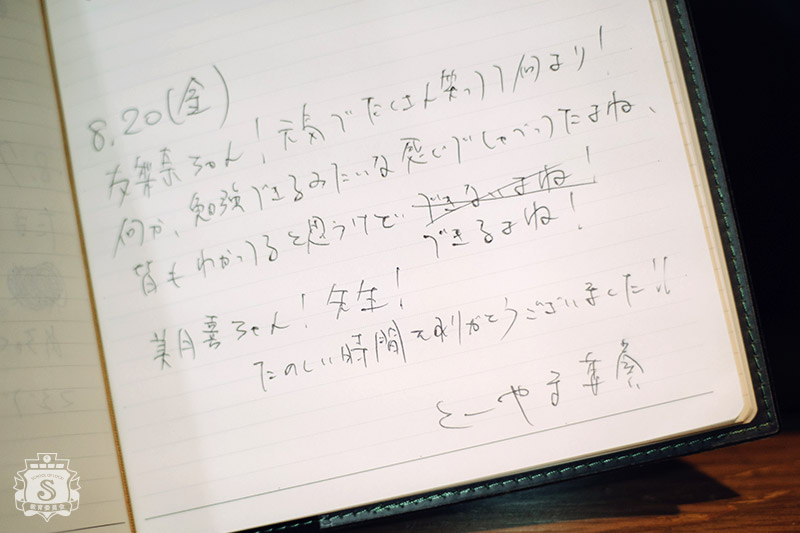 8.20(金)
友梨奈ちゃん！元気でたくさん笑ってて何より！
何か、勉強できるみたいな感じでしゃべってたよね、
皆もわかってると思うけど できないよね！
できるよね！
美月喜ちゃん！先生！
たのしい時間をありがとうございました!!
とーやま
SCHOOL OF LOCK!
S
教育委員会